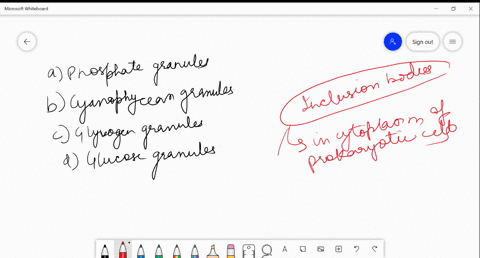 Microsoft Whiteboard
Sign out
a) Phosphate granules
b) Cyanophycean granules
c) Glycogen granules
d) Glucose granules
Inclusion bodies
in cytoplasm of
prokaryotic cells